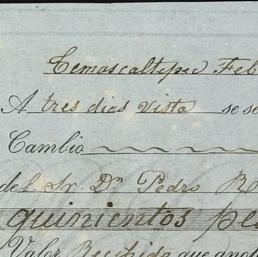 Temascaltepec Feb
A tres dias vista se se
Cambio
del Sr. Dn Pedro
quinientos
Valor Recibido que